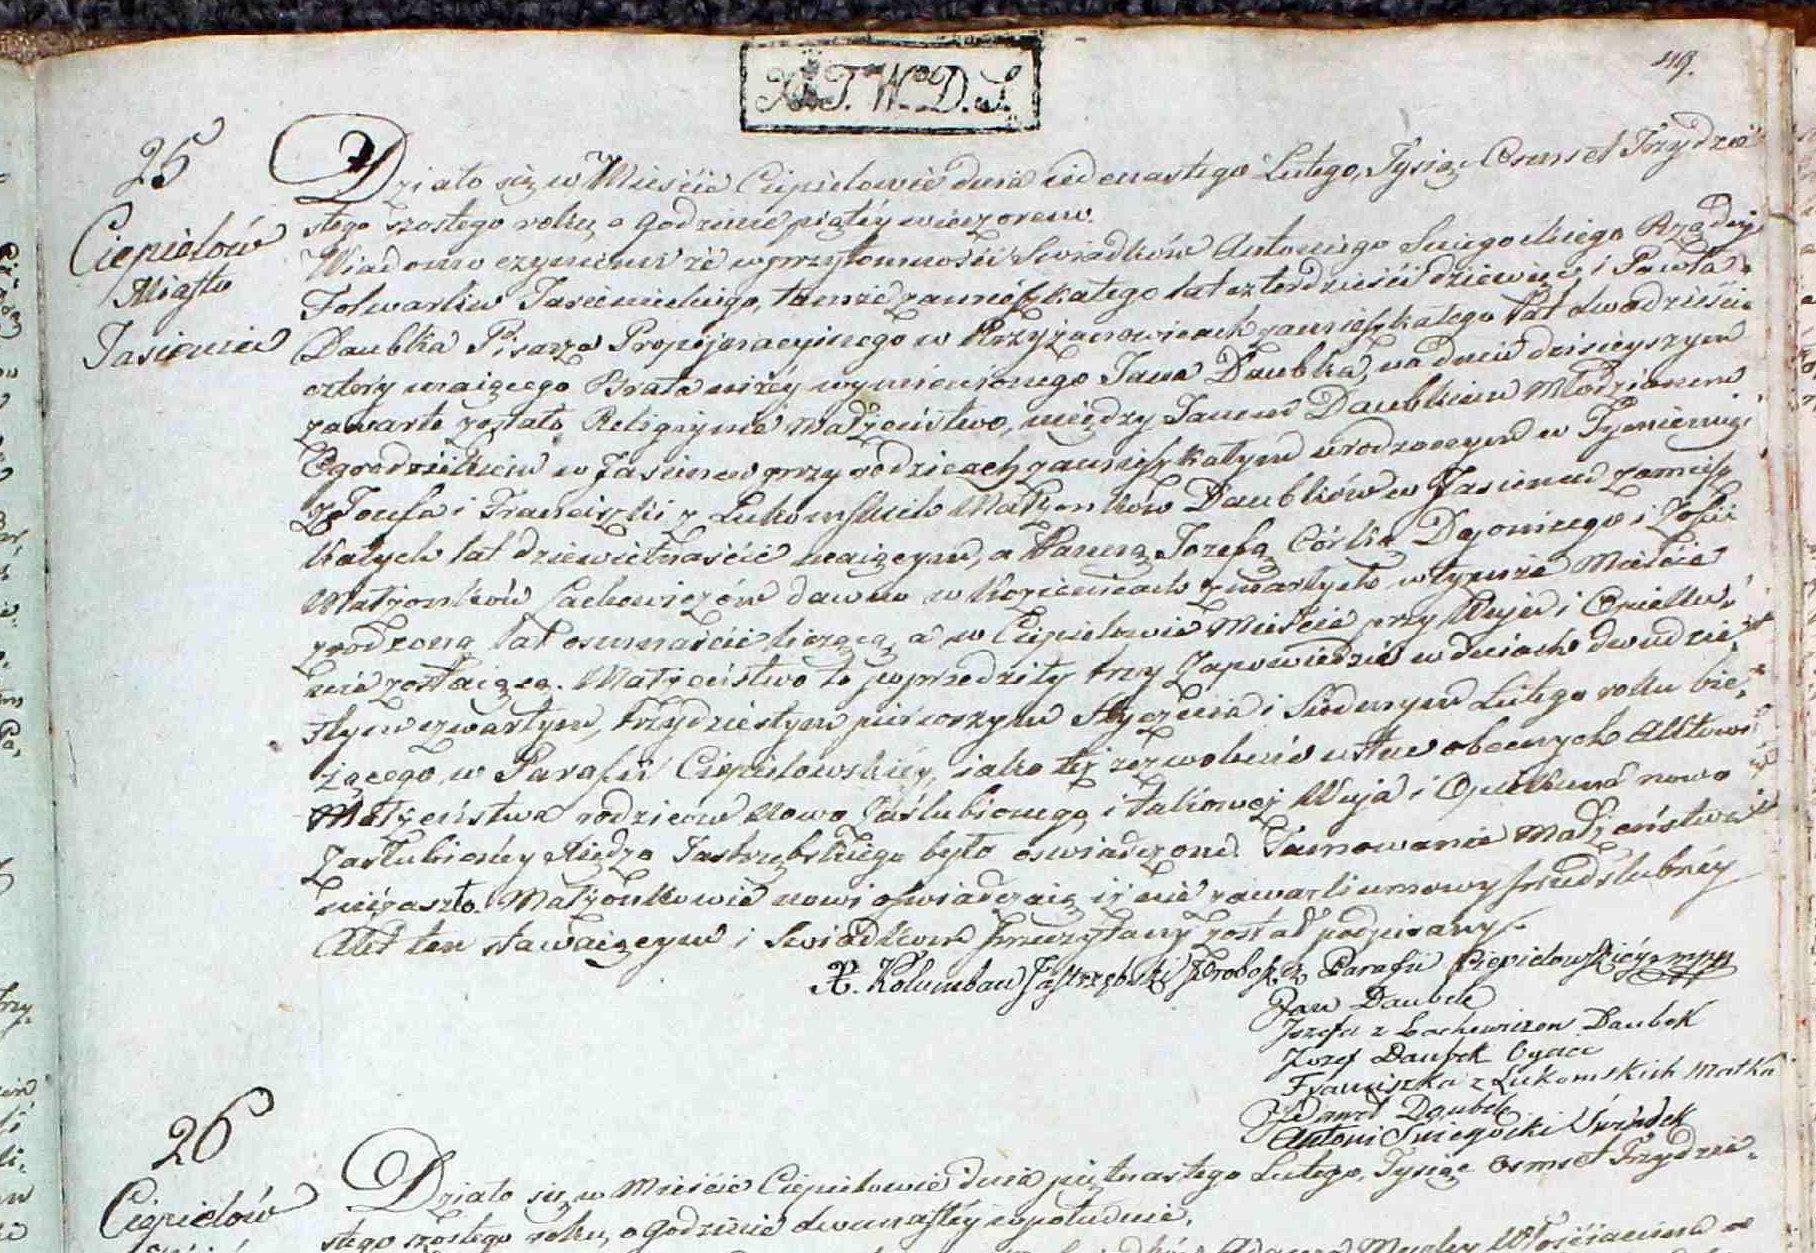 119.
K. T. W. D. S.
25
Ciepielów
Miasto
Jasieniec
Działo się w Mieście Ciepielowie dnia iedenastego Lutego, Tysiąc Osmset Trzydzie
stego szostego roku, o godzinie piątéy wieczorem.
Wiadomo czyniemy że w przytomności Swiadków Antoniego Sniegockiego Rządcy
Folwarku Jasienieckiego, tamże zamieszkałego lat czterdzieści dziewięć i Pawła
Daubka Pisarza Propinacyinego w Krzyżanowicach zamieszkałego lat dwadzieścia
cztery maiącego Brata niżéy wymienionego Jana Daubka, na dniu dzisieyszym
zawarte zostało Religijne małżeństwo, między Janem Daubkiem Młodzianem
Ogrodnikiem w Jasiencu przy rodzicach zamieszkałym urodzonym w
z Józefa i Franciszki z Łukomskich Małżonków Daubków w Jasiencu zamiesz
kałych lat dziewietnaście maiącym, a Panną Józefą Córką i Zofii
Małżonków Lachowiczów dawno w Kozienicach zmarłych, w tymże Mieście
zrodzoną lat osmnaście liczącą, a w Ciepielowie Mieście przy Wuju i Opieku-
nie zostaiącą. Małżeństwo to poprzedziły trzy Zapowiedzie w dniach dwudzie-
stym czwartym, trzydziestym pierwszym Stycznia i Siodmym Lutego roku bie-
żącego, w Parafii Ciepielowskiéy, iako téż zezwolenie ustne obecnych Aktowi
Małżeństwa rodziców Nowo Zaślubionego, i takowéż Wuja i Opiekuna nowo
Zaślubionéy Xiędza Jastrzębskiego było oswiadczone. Tamowanie Małżeństwa
nie zaszło. Małżonkowie nowi oswiadczaią iż nie zawarli umowy przedślubnéy
Akt ten stawaiącym i Swiadkom przeczytany został podpisany.
X. Kolumban Jastrzębski Proboszcz Parafii Ciepielowskiéy mpp
Jan Daubek
Jozefa z Lachowiczow Daubek
Jozef Daubek Oyciec
Franciszka z Łukomskich Matka
Paweł Daubek
Antoni Sniegocki Świadek
26
Ciepielów
Działo się w Mieście Ciepielowie dnia piętnastego Lutego, Tysiąc osmset Trzydzie-
stego szostego roku, o godzinie dwunastéy w południe.